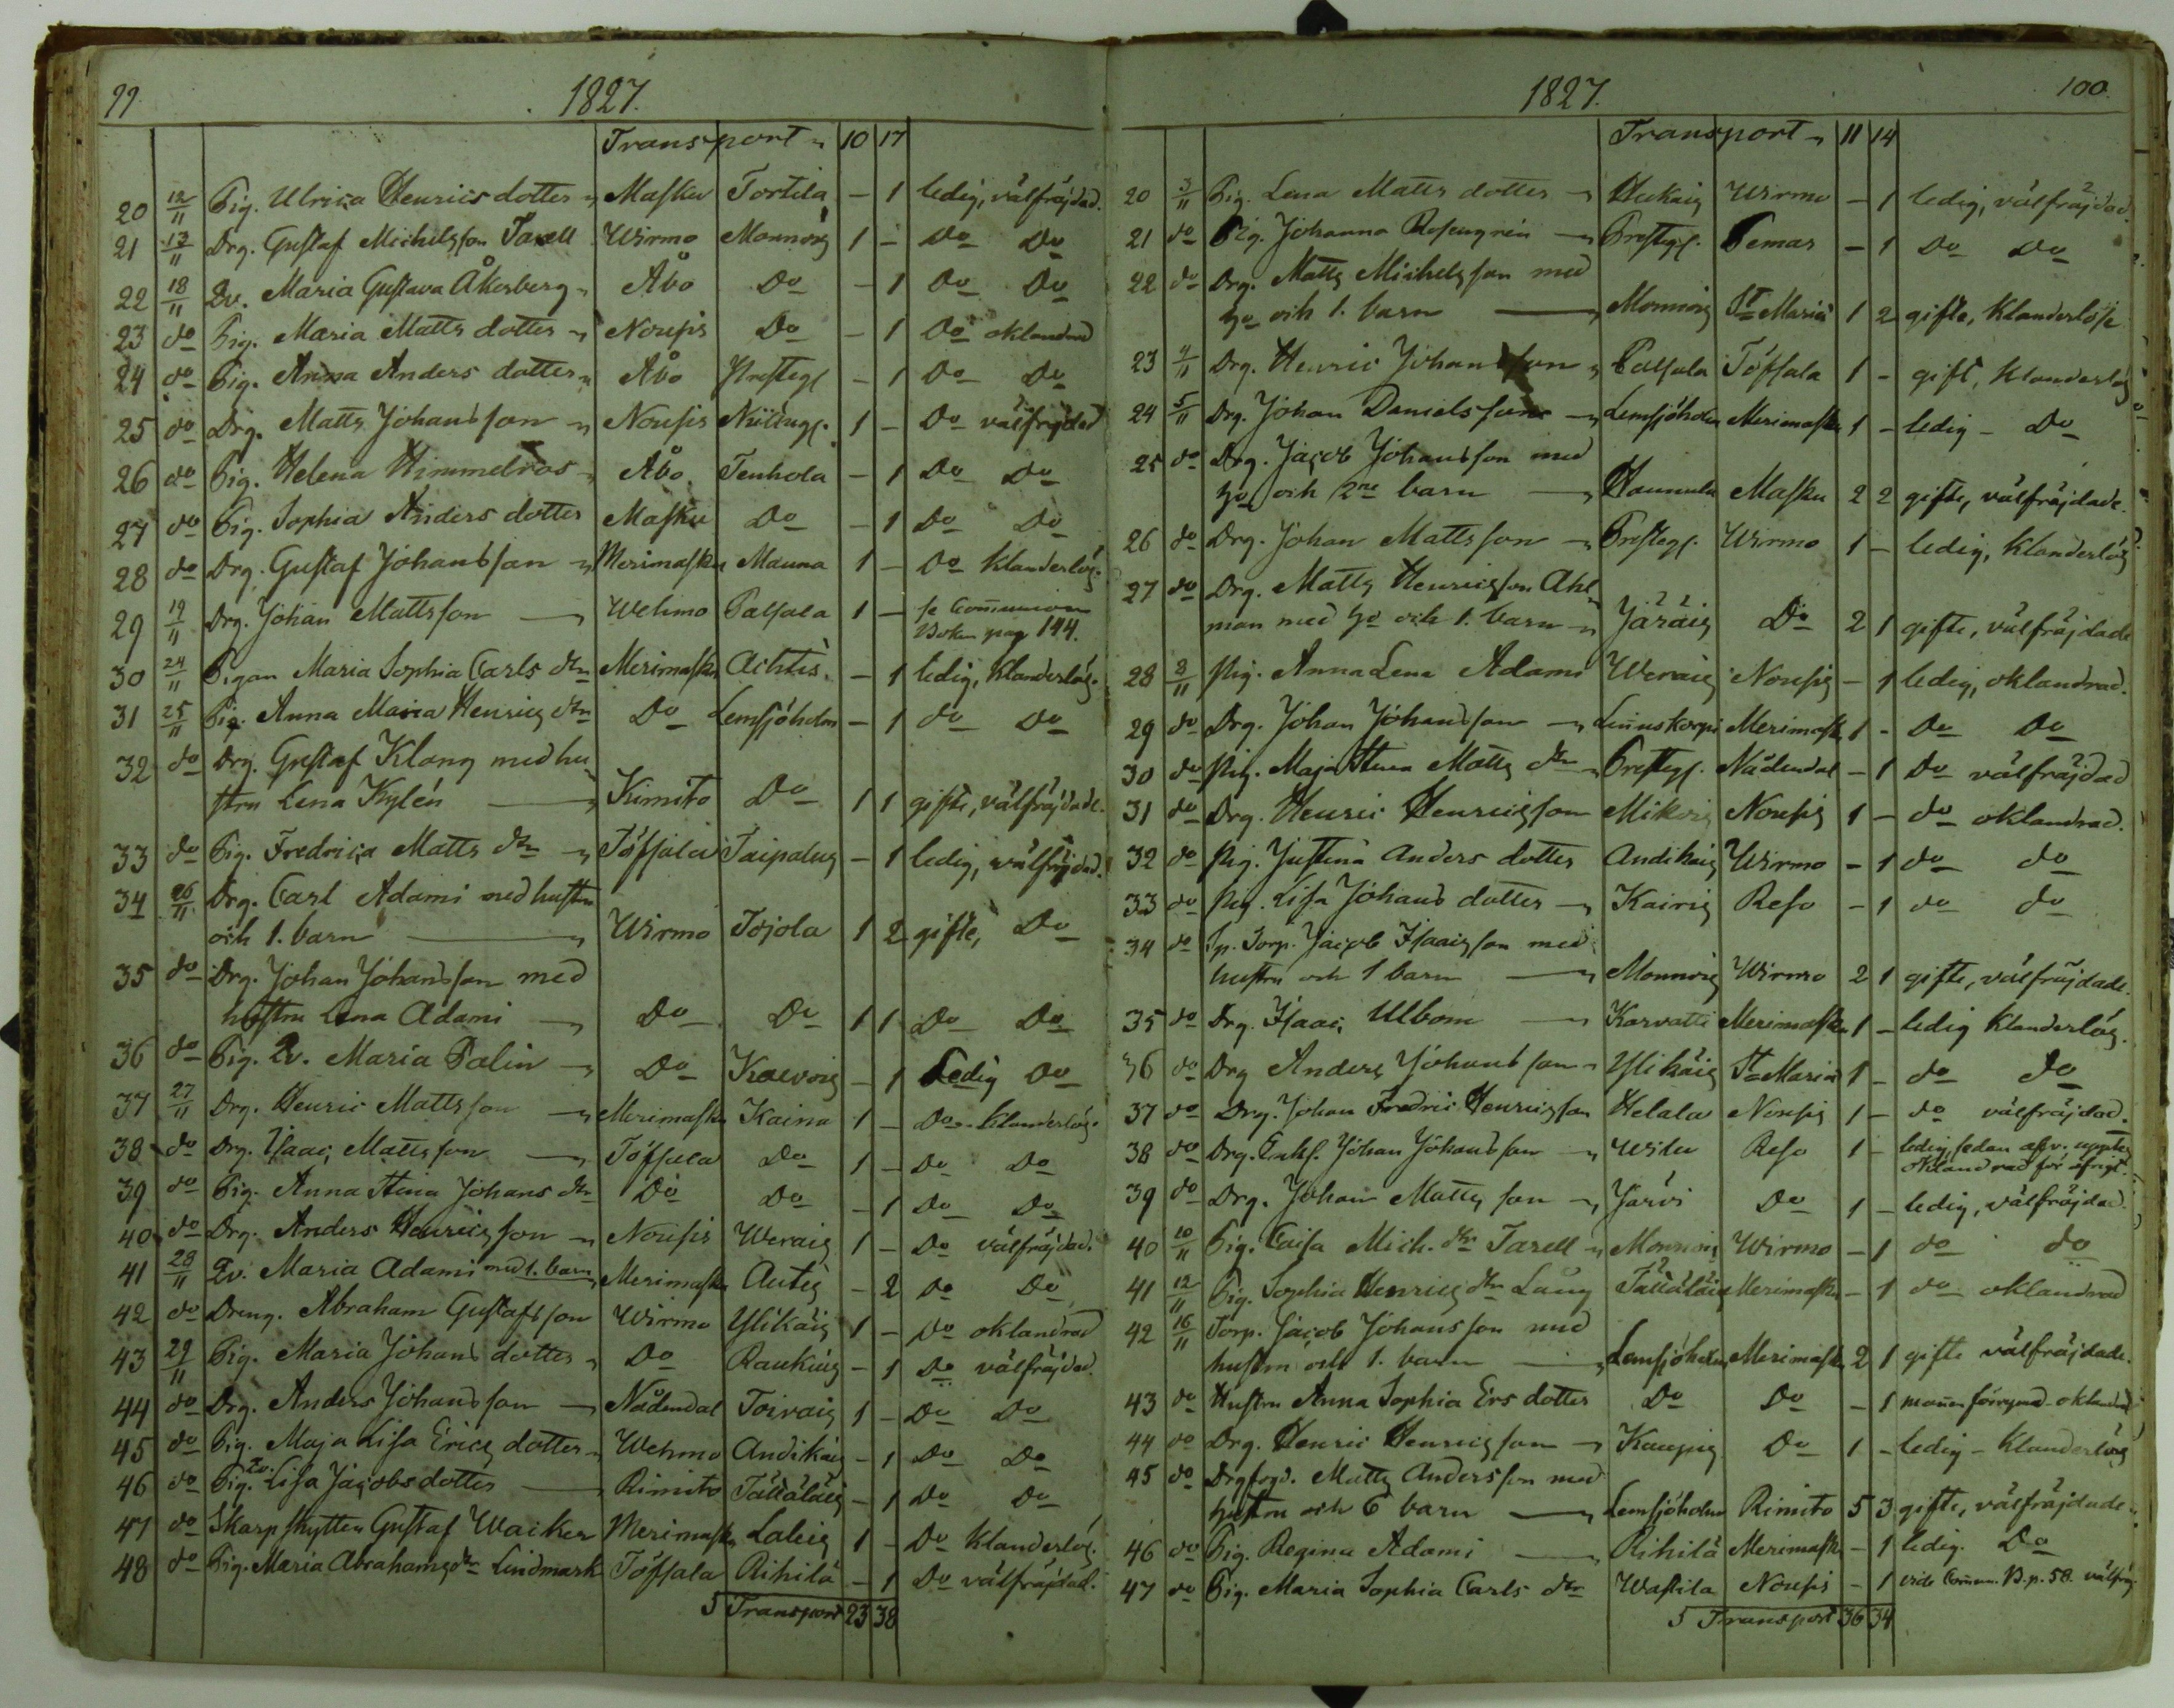 99.
1827.
Transport 10 17
20 12/11 Pig. Ulrica Henrics dotter Masku Tortila – 1 ledig, välfräjdad.
21 13/11 Drg. Gustaf Michelsson Tarell Wirmo Monnois 1 – Do Do
22 18/11 Qv. Maria Gustava Åkerberg Åbo Do – 1 Do Do
23 do Pig. Maria Matts dotter Nousis Do – 1 Do oklandrad
24 do Pig. Anna Anders dotter Åbo Presteg. – 1 Do Do
25 do Drg. Matts Johansson Nousis 1 – Do välfräjdad
26 do Pig. Helena Himmelroos Åbo Tenhola – 1 Do Do
27 do Pig. Sophia Anders dotter Masku Do – 1 Do Do
28 do Drg. Gustaf Johansson Merimasku Mauna 1 – Do klanderlös.
29 19/11 Drg. Johan Mattsson Wehmo Palsala 1 – se Communion
Boken pag 144.
30 24/11 Pigan Maria Sophia Carls dtr Merimasku Achtis – 1 ledig, klanderlös.
31 25/11 Pig. Anna Maria Henrics dtr Do Lemsjöholm – 1 do Do
32 do Drg. Gustaf Klang med hu
stru Lena Kylén Kimito Do 1 1 gifte, välfräjdade.
33 do Pig. Fredrica Matts dtr Töfsala Taipalus – 1 ledig, välfräjdad.
34 26/11 Drg. Carl Adami med hustru
och 1. barn Wirmo Tojola 1 2 gifte, Do
35 do Drg. Johan Johansson med
hustru Lena Adami Do Do 1 1 Do Do
36 do Pig. Qv. Maria Palin Do – 1 Ledig Do
37 27/11 Drg. Henric Mattsson Merimasku Kaina 1 – Do klanderlös.
38 do Drg. Isaac Mattsson Töfsala Do 1 – Do Do
39 do Pig. Anna Stina Johans dtr Do Do – 1 Do Do
40 do Drg. Anders Henricsson Nousis Werais 1 – Do välfräjdad.
41 28/11 Qv. Maria Adami med 1. barn Merimasku Autis – 2 Do Do
42 do Dreng. Abraham Gustafsson Wirmo Ylikäis 1 – Do oklandrad
43 29/11 Pig. Maria Johans dotter Do Raukais – 1 Do välfräjdad.
44 do Drg. Anders Johansson Nådendal Toivais 1 – Do Do
45 do Pig. Maja Lisa Erics dotter Wehmo Andikais – 1 Do Do
46 do Pig. Qv. Lisa Jacobsdotter Rimito – 1 Do Do
47 do Skarpskytten Gustaf Waiker Merimasku Laleis 1 – Do klanderlös.
48 do Pig. Maria Abrahams dtr Lindmark Töfsala Rihilä – 1 Do välfräjdad.
5 Transport 23 38
100.
1827.
Transport 11 14
20 3/11 Pig. Lena Matts dotter Wirmo – 1 ledig, välfräjdad.
21 do Pig. Johanna Rosengrén Prestegs. Pemar – 1 Do Do
22 do Drg. Matts Michelsson med
Ho och 1. barn Monnois St Mariæ 1 2 gifte, klanderlöse
23 4/11 Drg. Henric Johansson Palsala Töfsala 1 – gift, klanderlös
24 5/11 Drg. Johan Danielsson Lemsjöholm Merimasku 1 – ledig – Do
25 do Drg. Jacob Johansson med
Ho och 2ne barn Hannula Masku 2 2 gifte, välfräjdade.
26 do Drg. Johan Mattsson Prestegs. Wirmo 1 – ledig, klanderlös
27 do Drg. Matts Henricsson Ahl
man med Ho och 1. barn Järäis Do 2 1 gifte, välfräjdade
28 8/11 Pig. Anna Lena Adami Werais Nousis – 1 ledig, oklandrad.
29 do Drg. Johan Johansson Linnuskorpi Merimask 1 – Do Do
30 do Pig. Maja Stina Matts dtr Prestegs. Nådendal – 1 Do välfräjdad
31 do Drg. Henric Henricsson Mikois Nousis 1 – do oklandrad.
32 do Pig. Justina Anders dotter Andikais Wirmo – 1 do do
33 do Pig. Lisa Johans dotter Kairis Reso – 1 do do
34 do Sp. Torp. Jacob Isaacsson med
hustru och 1 barn Monnois Wirmo 2 1 gifte, välfräjdade.
35 do Drg. Isaac Ulbom Karvatti Merimasku 1 – ledig klanderlös.
36 do Drg Anders Johansson Ylikäis St Mariæ 1 – do do
37 do Drg. Johan Fredric Henricsson Helala Nousis 1 – do välfräjdad.
38 do Drg. Enkl. Johan Johansson Wilu Reso 1 – ledig sedan
oklandrad för öfrigt.
39 do Drg. Johan Mattsson Järvi Do 1 – ledig, välfräjdad.
40 10/11 Pig. Caisa Mich. dtr Tarell Monnois Wirmo – 1 do do
41 12/11 Pig. Sophia Henrics dtr Lang Merimasku – 1 do oklandrad
42 16/11 Torp. Jacob Johansson med
hustru och 1. barn Lemsjöholm Merimasku 2 1 gifte välfräjdade.
43 do Hustru Anna Sophia Ers dotter Do Do – 1 mannen förrymd oklandrad
44 do Drg. Henric Henricsson Kaupis Do 1 – ledig – klanderlös
45 do Drgfogd. Matts Andersson med
hustru och 6 barn Lemsjöholm Rimito 5 3 gifte, välfräjdade.
46 do Pig. Regina Adami Rihilä Merimask – 1 ledig. Do
47 do Pig. Maria Sophia Carls dtr Wastila Nousis – 1 vide Comun. B. p. 58. välfräj.
5 Transport 36 34